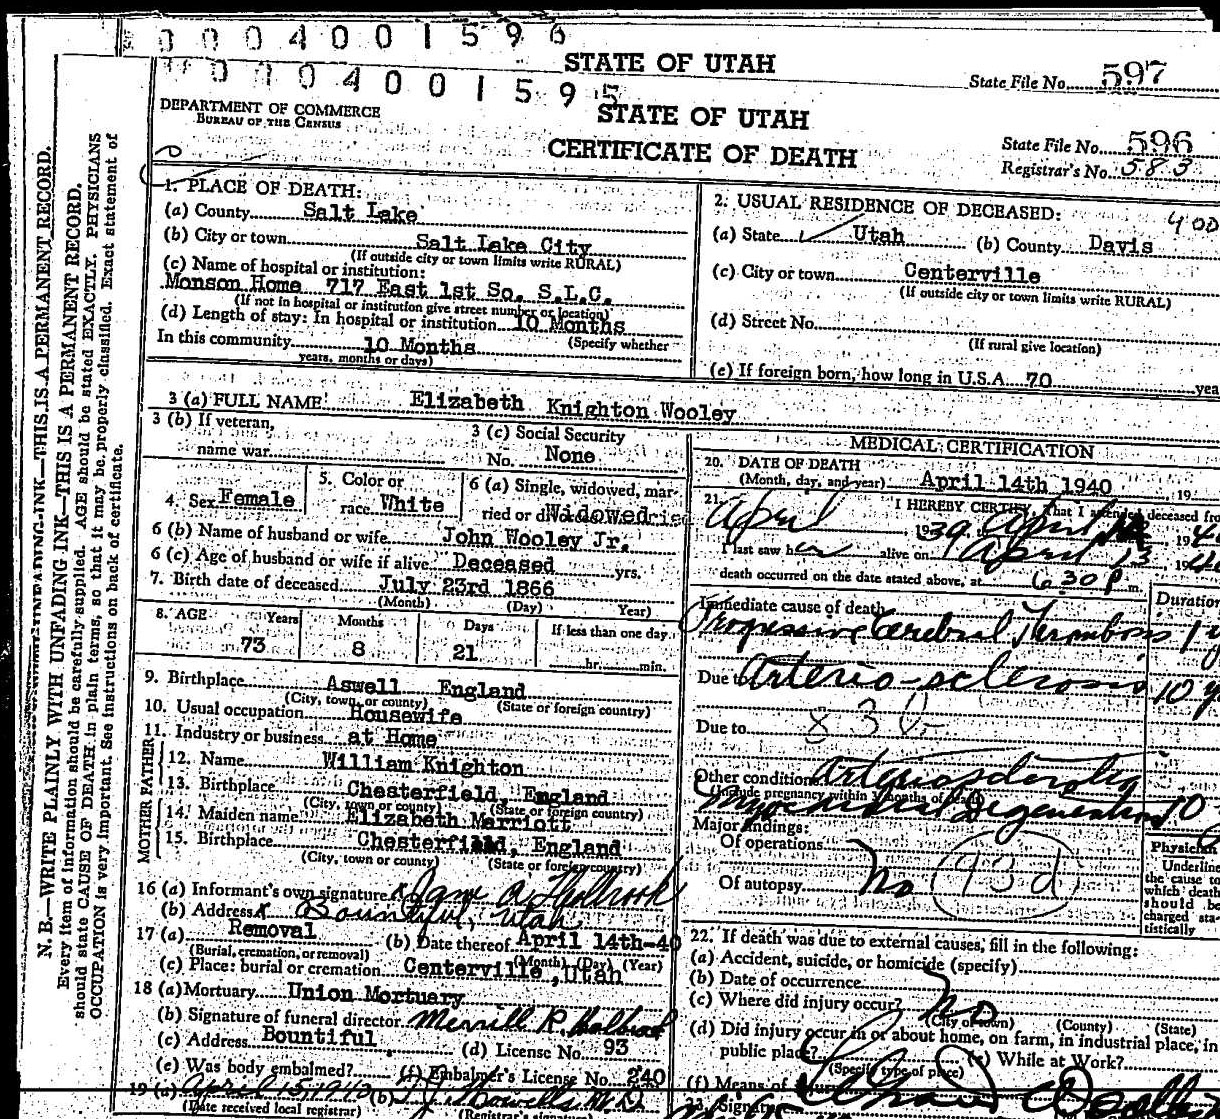 0004001596
STATE OF UTAH
State File No. 597
0004001595
DEPARTMENT OF COMMERCE
BUREAU OF THE CENSUS
STATE OF UTAH
CERTIFICATE OF DEATH
State File No. 596
Registrar's No. 583
N. B.—WRITE PLAINLY WITH UNFADING INK—THIS IS A PERMANENT RECORD.
Every item of information should be carefully supplied. AGE should be stated EXACTLY. PHYSICIANS
should state CAUSE OF DEATH in plain terms, so that it may be properly classified. Exact statement of
OCCUPATION is very important. See instructions on back of certificate.
1. PLACE OF DEATH:
(a) County Salt Lake
(b) City or town Salt Lake City
(If outside city or town limits write RURAL)
(c) Name of hospital or institution:
Monson Home 717 East 1st So. S.L.C.
(If not in hospital or institution give street number or location)
(d) Length of stay: In hospital or institution 10 Months
(Specify whether
In this community 10 Months
years, months or days)
2. USUAL RESIDENCE OF DECEASED:
400
(a) State Utah (b) County Davis
(c) City or town Centerville
(If outside city or town limits write RURAL)
(d) Street No.
(If rural give location)
(e) If foreign born, how long in U.S.A. 70 yea
3 (a) FULL NAME Elizabeth Knighton Wooley
3 (b) If veteran,
name war
3 (c) Social Security
No. None
4. Sex Female
5. Color or
race White
6 (a) Single, widowed, mar-
ried or divorced Widowed
6 (b) Name of husband or wife John Wooley Jr.
6 (c) Age of husband or wife if alive Deceased yrs.
7. Birth date of deceased July 23rd 1866
(Month) (Day) Year)
8. AGE Years Months Days If less than one day
73 8 21 hr. min.
9. Birthplace Aswell England
(City, town, or county) (State or foreign country)
10. Usual occupation Housewife
11. Industry or business at Home
FATHER
12. Name William Knighton
13. Birthplace Chesterfield England
(City, town or county) (State or foreign country)
MOTHER
14. Maiden name Elizabeth Marriott
15. Birthplace Chesterfield, England
(City, town or county) (State or foreign country)
16 (a) Informant's own signature x Jane A Holbrook
(b) Address x Bountiful, Utah
17 (a) Removal (b) Date thereof April 14th-40
(Burial, cremation, or removal) (Month) (Day) (Year)
(c) Place: burial or cremation Centerville, Utah
18 (a) Mortuary Union Mortuary
(b) Signature of funeral director Merrill R. Holbrook
(c) Address Bountiful (d) License No. 93
(e) Was body embalmed? (f) Embalmer's License No. 240
19 (a) April 15, 1940 (b) T. J. Howells M.D.
(Date received local registrar) (Registrar's
MEDICAL CERTIFICATION
20. DATE OF DEATH
(Month, day, and year) April 14th 1940 19
21. I HEREBY CERTIFY, That I attended deceased fro
April 1939 April 194
I last saw her alive on April 13 194
death occurred on the date stated above, at 6 30 P m.
Duration
Immediate cause of death
Progressive Cerebral Thrombosis 1 y
Due to Arterio-sclerosis 10 y
Due to 83b
Other conditions Arteriosclerotic
(Include pregnancy within 3 months of death)
Myocardial Degeneration 10
Major findings:
Of operations
Of autopsy No
93d
Physician
Underline
the cause to
which death
should be
charged sta-
tistically
22. If death was due to external causes, fill in the following:
(a) Accident, suicide, or homicide (specify)
(b) Date of occurrence
(c) Where did injury occur? No
(City or town) (County) (State)
(d) Did injury occur in or about home, on farm, in industrial place, in
public place?
(Specify type of place)
(e) While at Work?
(f) Means of
Signature